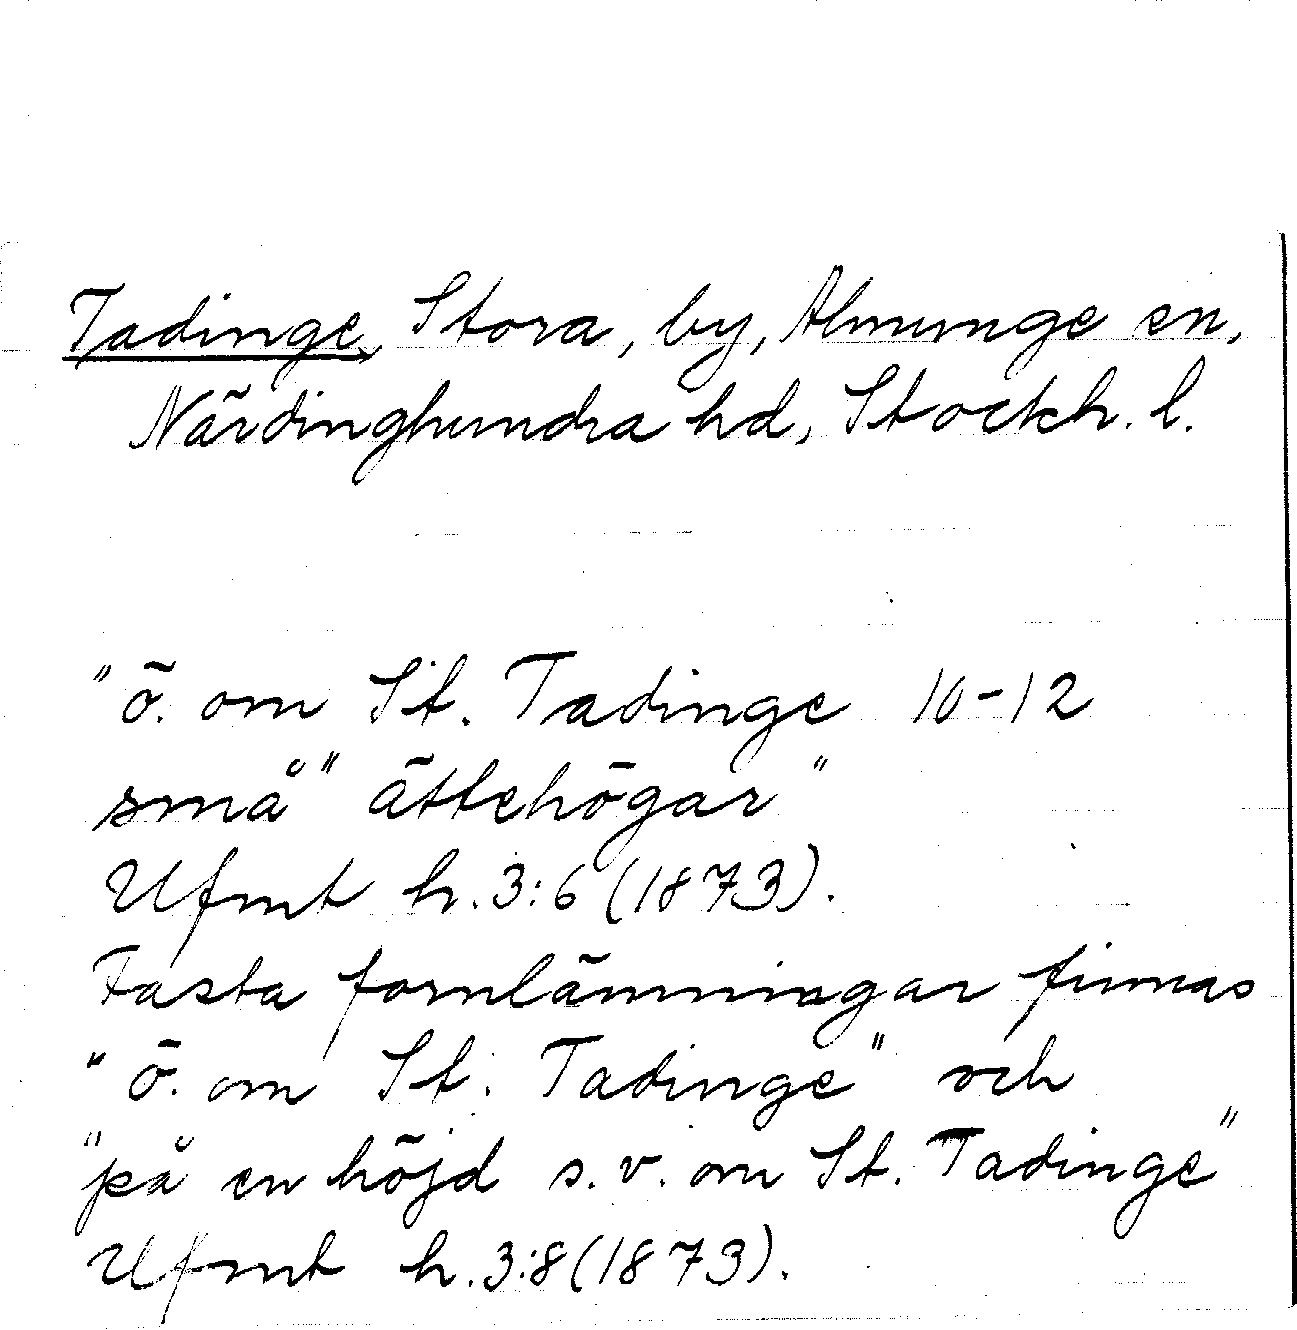 Tadinge, Stora, by, Almunge sn,
Närdinghundra hd, Stockh. l.
"ö. om St. Tadinge 10-12
små" ättehögar"
Ufmt h. 3:6 (1873).
Fasta fornlämningar finnas
"ö. om St. Tadinge" och
"på en höjd s. v. om St. Tadinge"
Ufmt h. 3:8 (1873).